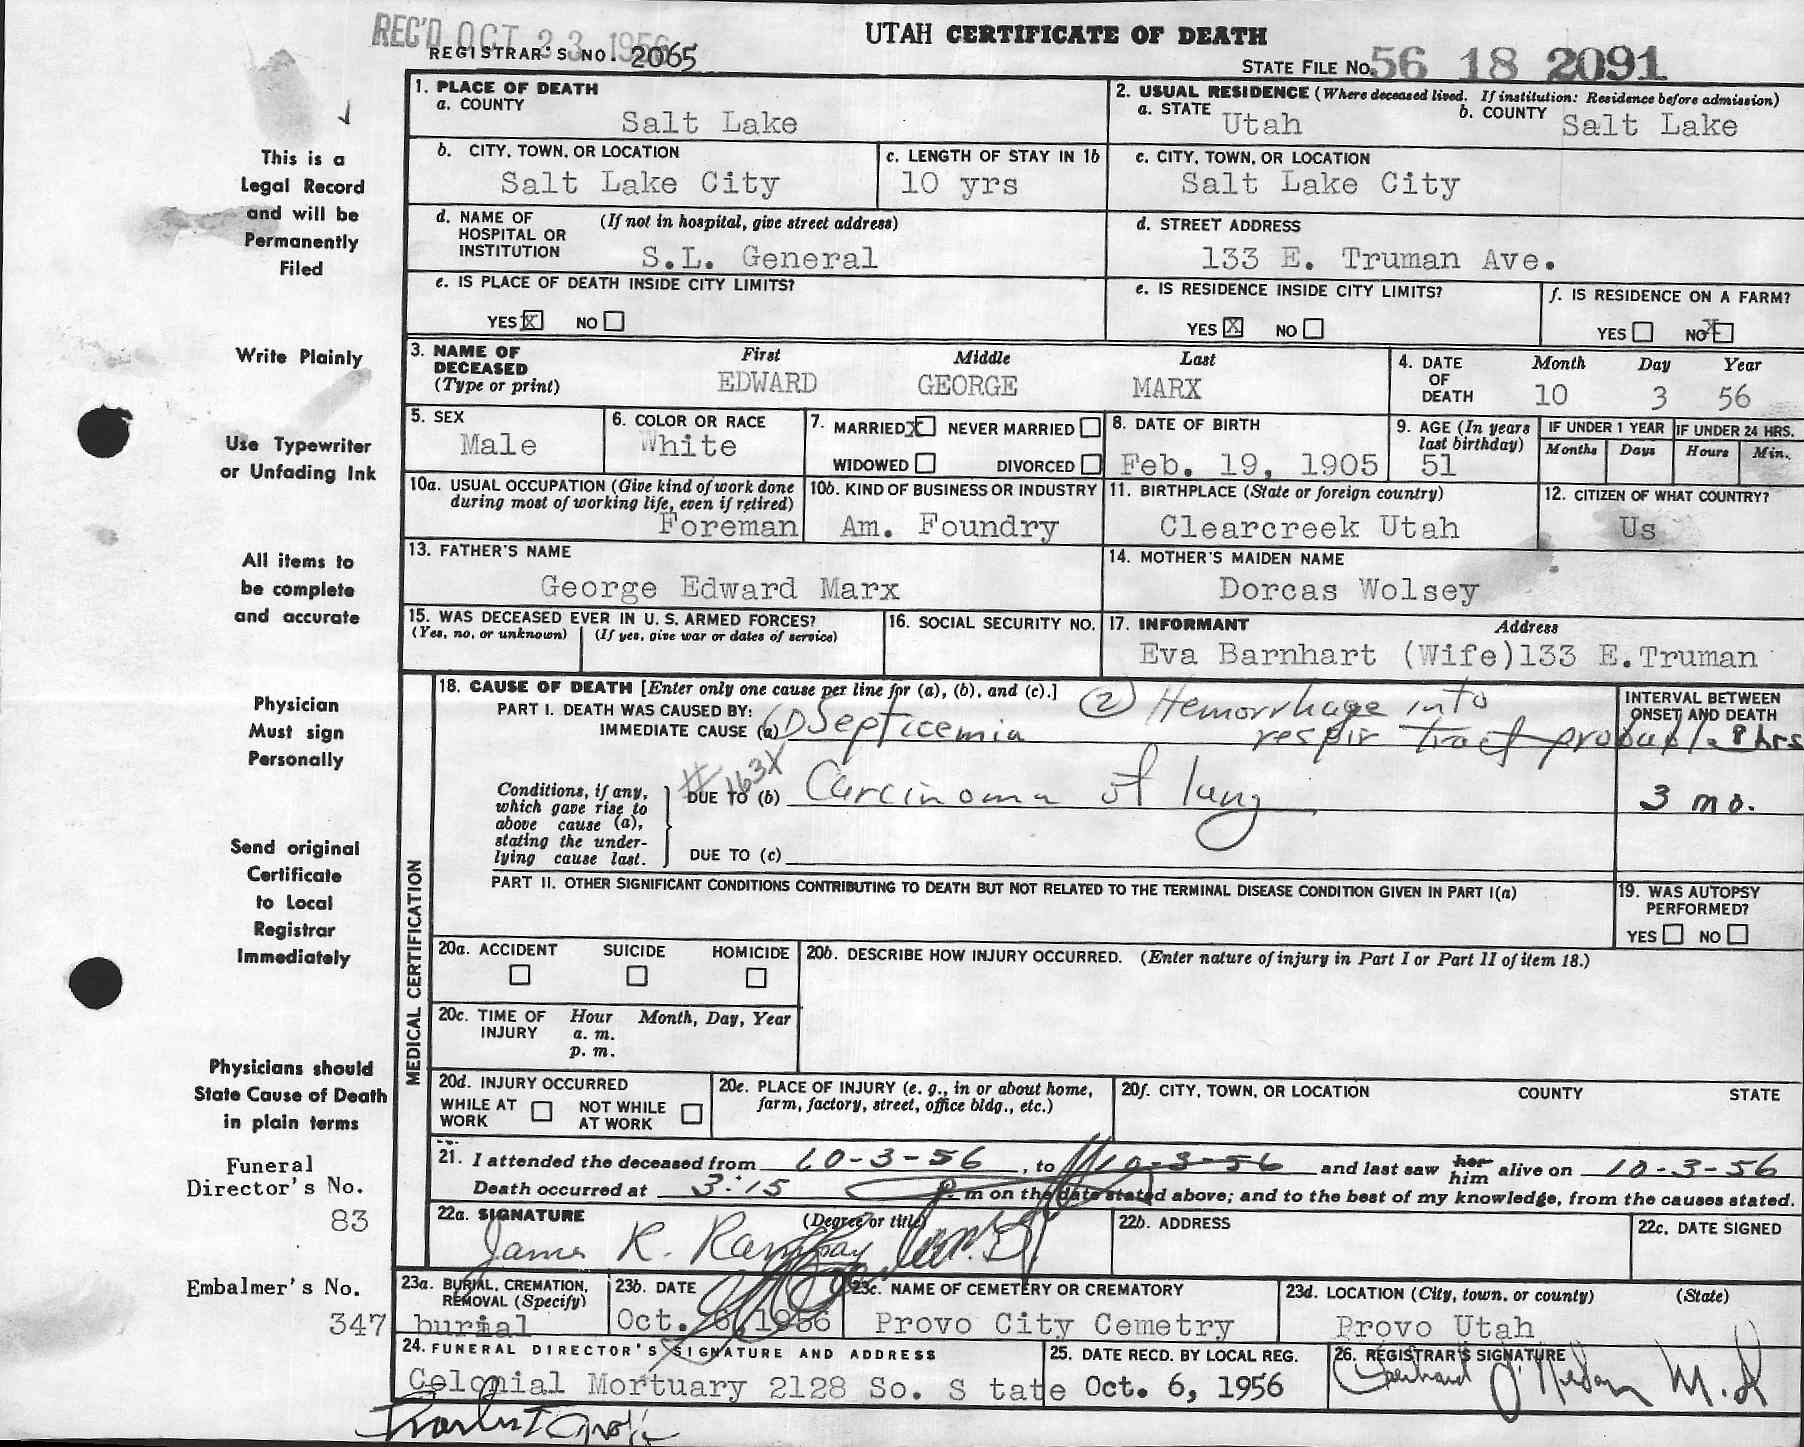 REC'D OCT 23 1956
UTAH CERTIFICATE OF DEATH
REGISTRAR'S NO. 2065
STATE FILE NO. 56 18 2091
This is a
Legal Record
and will be
Permanently
Filed
Write Plainly
Use Typewriter
or Unfading Ink
All items to
be complete
and accurate
Physician
Must sign
Personally
Send original
Certificate
to Local
Registrar
Immediately
Physicians should
State Cause of Death
in plain terms
Funeral
Director's No.
83
Embalmer's No.
347
1. PLACE OF DEATH
a. COUNTY
Salt Lake
2. USUAL RESIDENCE (Where deceased lived. If institution: Residence before admission)
a. STATE Utah b. COUNTY Salt Lake
b. CITY, TOWN, OR LOCATION
Salt Lake City
c. LENGTH OF STAY IN 1b
10 yrs
c. CITY, TOWN, OR LOCATION
Salt Lake City
d. NAME OF HOSPITAL OR INSTITUTION (If not in hospital, give street address)
S.L. General
d. STREET ADDRESS
133 E. Truman Ave.
e. IS PLACE OF DEATH INSIDE CITY LIMITS?
YES X NO
e. IS RESIDENCE INSIDE CITY LIMITS?
YES X NO
f. IS RESIDENCE ON A FARM?
YES NO X
3. NAME OF DECEASED (Type or print) First Middle Last
EDWARD GEORGE MARX
4. DATE OF DEATH Month Day Year
10 3 56
5. SEX
Male
6. COLOR OR RACE
White
7. MARRIED X NEVER MARRIED
WIDOWED DIVORCED
8. DATE OF BIRTH
Feb. 19, 1905
9. AGE (In years last birthday)
51
IF UNDER 1 YEAR IF UNDER 24 HRS.
Months Days Hours Min.
10a. USUAL OCCUPATION (Give kind of work done
during most of working life, even if retired)
Foreman
10b. KIND OF BUSINESS OR INDUSTRY
Am. Foundry
11. BIRTHPLACE (State or foreign country)
Clearcreek Utah
12. CITIZEN OF WHAT COUNTRY?
Us
13. FATHER'S NAME
George Edward Marx
14. MOTHER'S MAIDEN NAME
Dorcas Wolsey
15. WAS DECEASED EVER IN U. S. ARMED FORCES?
(Yes, no, or unknown) (If yes, give war or dates of service)
16. SOCIAL SECURITY NO.
17. INFORMANT Address
Eva Barnhart (Wife)133 E.Truman
MEDICAL CERTIFICATION
18. CAUSE OF DEATH [Enter only one cause per line for (a), (b), and (c).]
PART I. DEATH WAS CAUSED BY:
IMMEDIATE CAUSE (a) (1) Septicemia (2) Hemorrhage into
respir tract probabl.
INTERVAL BETWEEN
ONSET AND DEATH
8 hrs
# 163X
Conditions, if any,
which gave rise to
above cause (a),
stating the under-
lying cause last.
DUE TO (b) Carcinoma of lung
3 mo.
DUE TO (c)
PART II. OTHER SIGNIFICANT CONDITIONS CONTRIBUTING TO DEATH BUT NOT RELATED TO THE TERMINAL DISEASE CONDITION GIVEN IN PART I(a)
19. WAS AUTOPSY
PERFORMED?
YES NO
20a. ACCIDENT SUICIDE HOMICIDE
20b. DESCRIBE HOW INJURY OCCURRED. (Enter nature of injury in Part I or Part II of item 18.)
20c. TIME OF INJURY Hour Month, Day, Year
a. m.
p. m.
20d. INJURY OCCURRED
WHILE AT WORK NOT WHILE AT WORK
20e. PLACE OF INJURY (e. g., in or about home,
farm, factory, street, office bldg., etc.)
20f. CITY, TOWN, OR LOCATION COUNTY STATE
21. I attended the deceased from 10-3-56, to 10-3-56 and last saw her him alive on 10-3-56
Death occurred at 3:15 p. m on the date stated above; and to the best of my knowledge, from the causes stated.
22a. SIGNATURE (Degree or title)
James R. Ramsay M.D.
22b. ADDRESS
22c. DATE SIGNED
23a. BURIAL, CREMATION,
REMOVAL (Specify)
burial
23b. DATE
Oct. 6, 1956
23c. NAME OF CEMETERY OR CREMATORY
Provo City Cemetry
23d. LOCATION (City, town, or county) (State)
Provo Utah
24. FUNERAL DIRECTOR'S SIGNATURE AND ADDRESS
Colonial Mortuary 2128 So. S tate
25. DATE RECD. BY LOCAL REG.
Oct. 6, 1956
26. REGISTRAR'S SIGNATURE
M.D